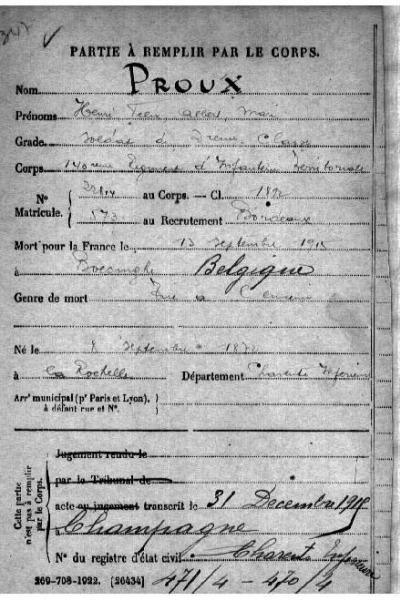 PARTIE À REMPLIR PAR LE CORPS.
Nom PROUX
Prénoms Henri
Grade Soldat de 2ème Classe
Corps 140ème Régiment d'Infanterie Territoriale
Nº Matricule. au Corps. — Cl. 1892
573 au Recrutement Bordeaux
Mort pour la France le 13 Septembre 1915
à Boesinghe Belgique
Genre de mort Tué à l'ennemi
Né le 8 Septembre 1872
à La Rochelle Département Charente Inférieure
Arrt municipal (pr Paris et Lyon), à défaut rue et Nº.
Cette partie n'est pas à remplir par le Corps.
Jugement rendu le
par le Tribunal de
acte ou jugement transcrit le 31 Décembre
à Champagne
Nº du registre d'état civil Charente Inférieure
269-708-1922. [26434] 471/4 - 470/4